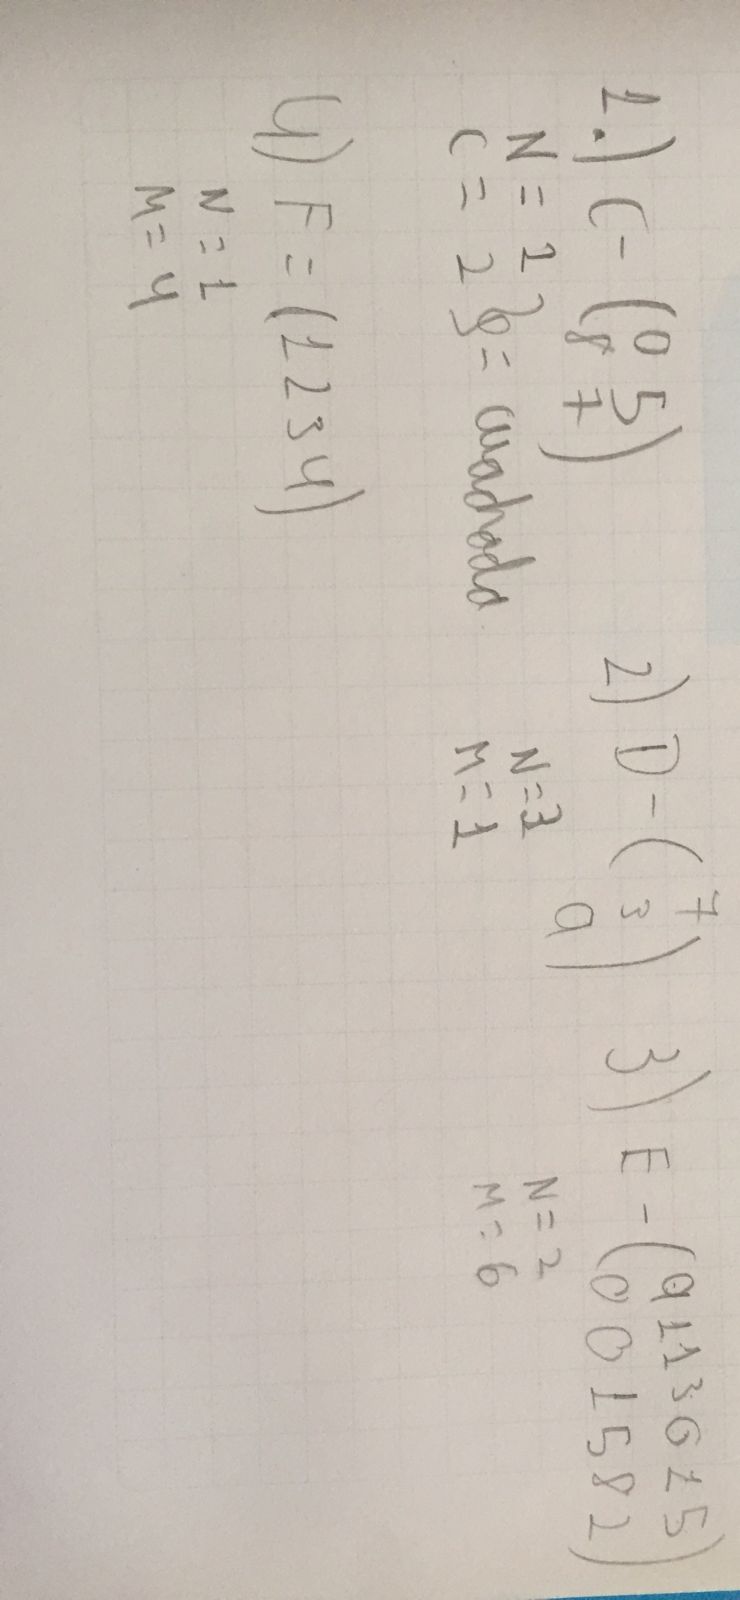 1.) C - (0 5
8 7)
N = 2
C = 2 } = cuadrada
2) D - (7
3
9)
N=3
M=1
3) E - (9 11 3 6 1 5
0 0 1 5 8 2)
N=2
M=6
4) F = (1 2 3 4)
N=1
M=4